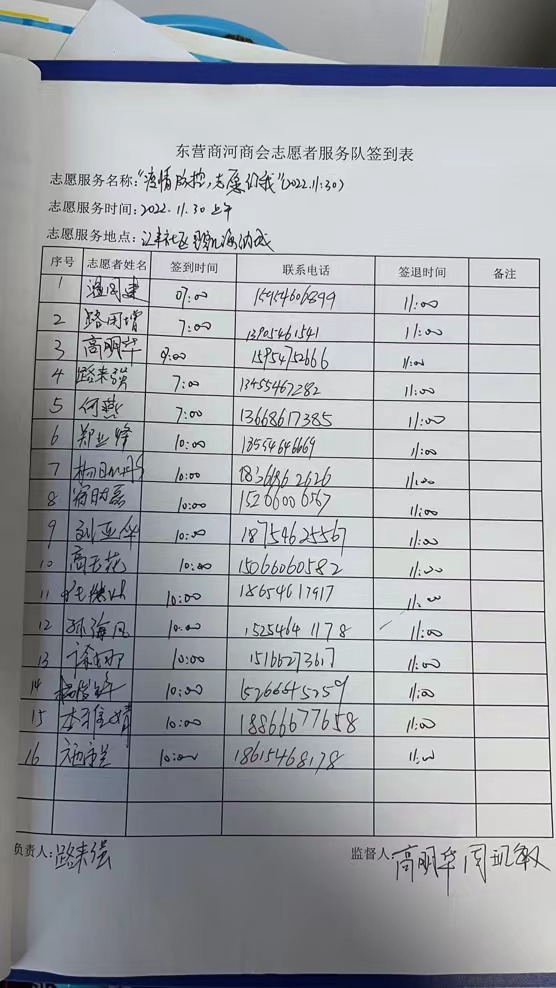 东营商河商会志愿者服务队签到表
志愿服务名称:“疫情防控,志愿你我”(2022.11.30)
志愿服务时间:2022.11.30上午
志愿服务地点:
序号 志愿者姓名 签到时间 联系电话 签退时间 备注
1 07:00 15954606899 11:00
2 路用增 7:00 13905461541 11:00
3 高明华 9:00 15954752666 11:00
4 路来强 7:00 13455467282 11:00
5 何燕 7:00 13668617385 11:00
6 郑业锋 10:00 18554646669 11:00
7 10:00 11:00
8 10:00 15266006567 11:00
9 刘亚华 10:00 18754625567 11:00
10 高玉花 10:00 15066060582 11:00
11 10:00 18654617917 11:00
12 孙海凤 10:00 15254641178 11:00
13 10:00 15166273617 11:00
14 10:00 15266645259 11:00
15 李雅婧 10:00 18866677658 11:00
16 10:00 18615468178 11:00
负责人:路来强 监督人 高明华